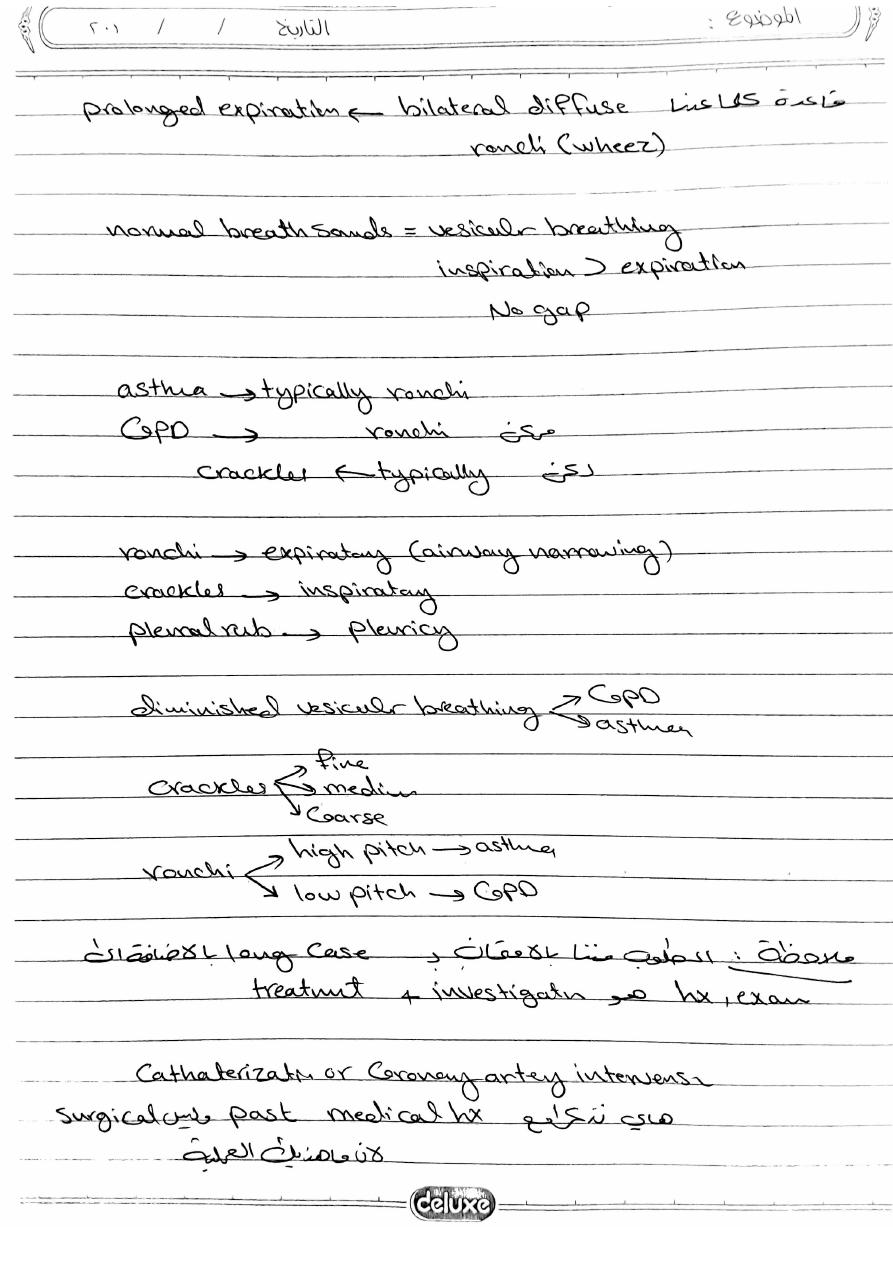 الموضوع :
التاريخ / / ٢٠١
قاعدة كلما عندنا bilateral diffuse ← prolonged expiration
ronchi (wheez)
normal breath sounds = vesiculr breathing
inspiration > expiration
No gap
asthma → typically ronchi
COPD → ronchi ممكن
لكن typically ← crackles
ronchi → expiratory (airway narrowing)
crackles → inspiratory
pleural rub → pleuricy
diminished vesiculr breathing → COPD
→ asthma
crackles → fine
→ medium
→ Coarse
ronchi → high pitch → asthma
→ low pitch → COPD
ملاحظة : المطلوب مننا بالامتحان long Case بالاضافة الى
hx, exam هو investigatn + treatmnt
Cathaterizatn or Coronary artery intervensn
هاي تذكر مع past medical hx وليس surgical
لان العملية
deluxe